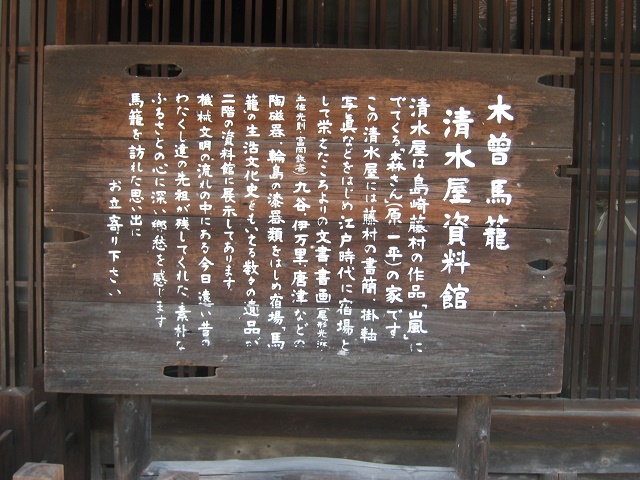 木曽馬籠
清水屋資料館
清水屋は島崎藤村の作品「嵐」に
でてくる「森さん」(原一平)の家です
この清水屋には藤村の書簡、掛軸
写真などをはじめ江戸時代に宿場と
して栄えたころよりの文書書画(尾形光琳、
土佐光則、富岡鉄斎)九谷、伊万里、唐津などの
陶磁器、輪島の漆器類をはじめ宿場「馬
籠の生活文化史ともいえる数々の遺品が
二階の資料館に展示しております
機械文明の流れの中にある今日遠い昔の
わたくし達の先祖が残してくれた素朴な
ふるさとの心に深い郷愁を感じます
馬籠を訪れた思い出に
お立寄り下さい